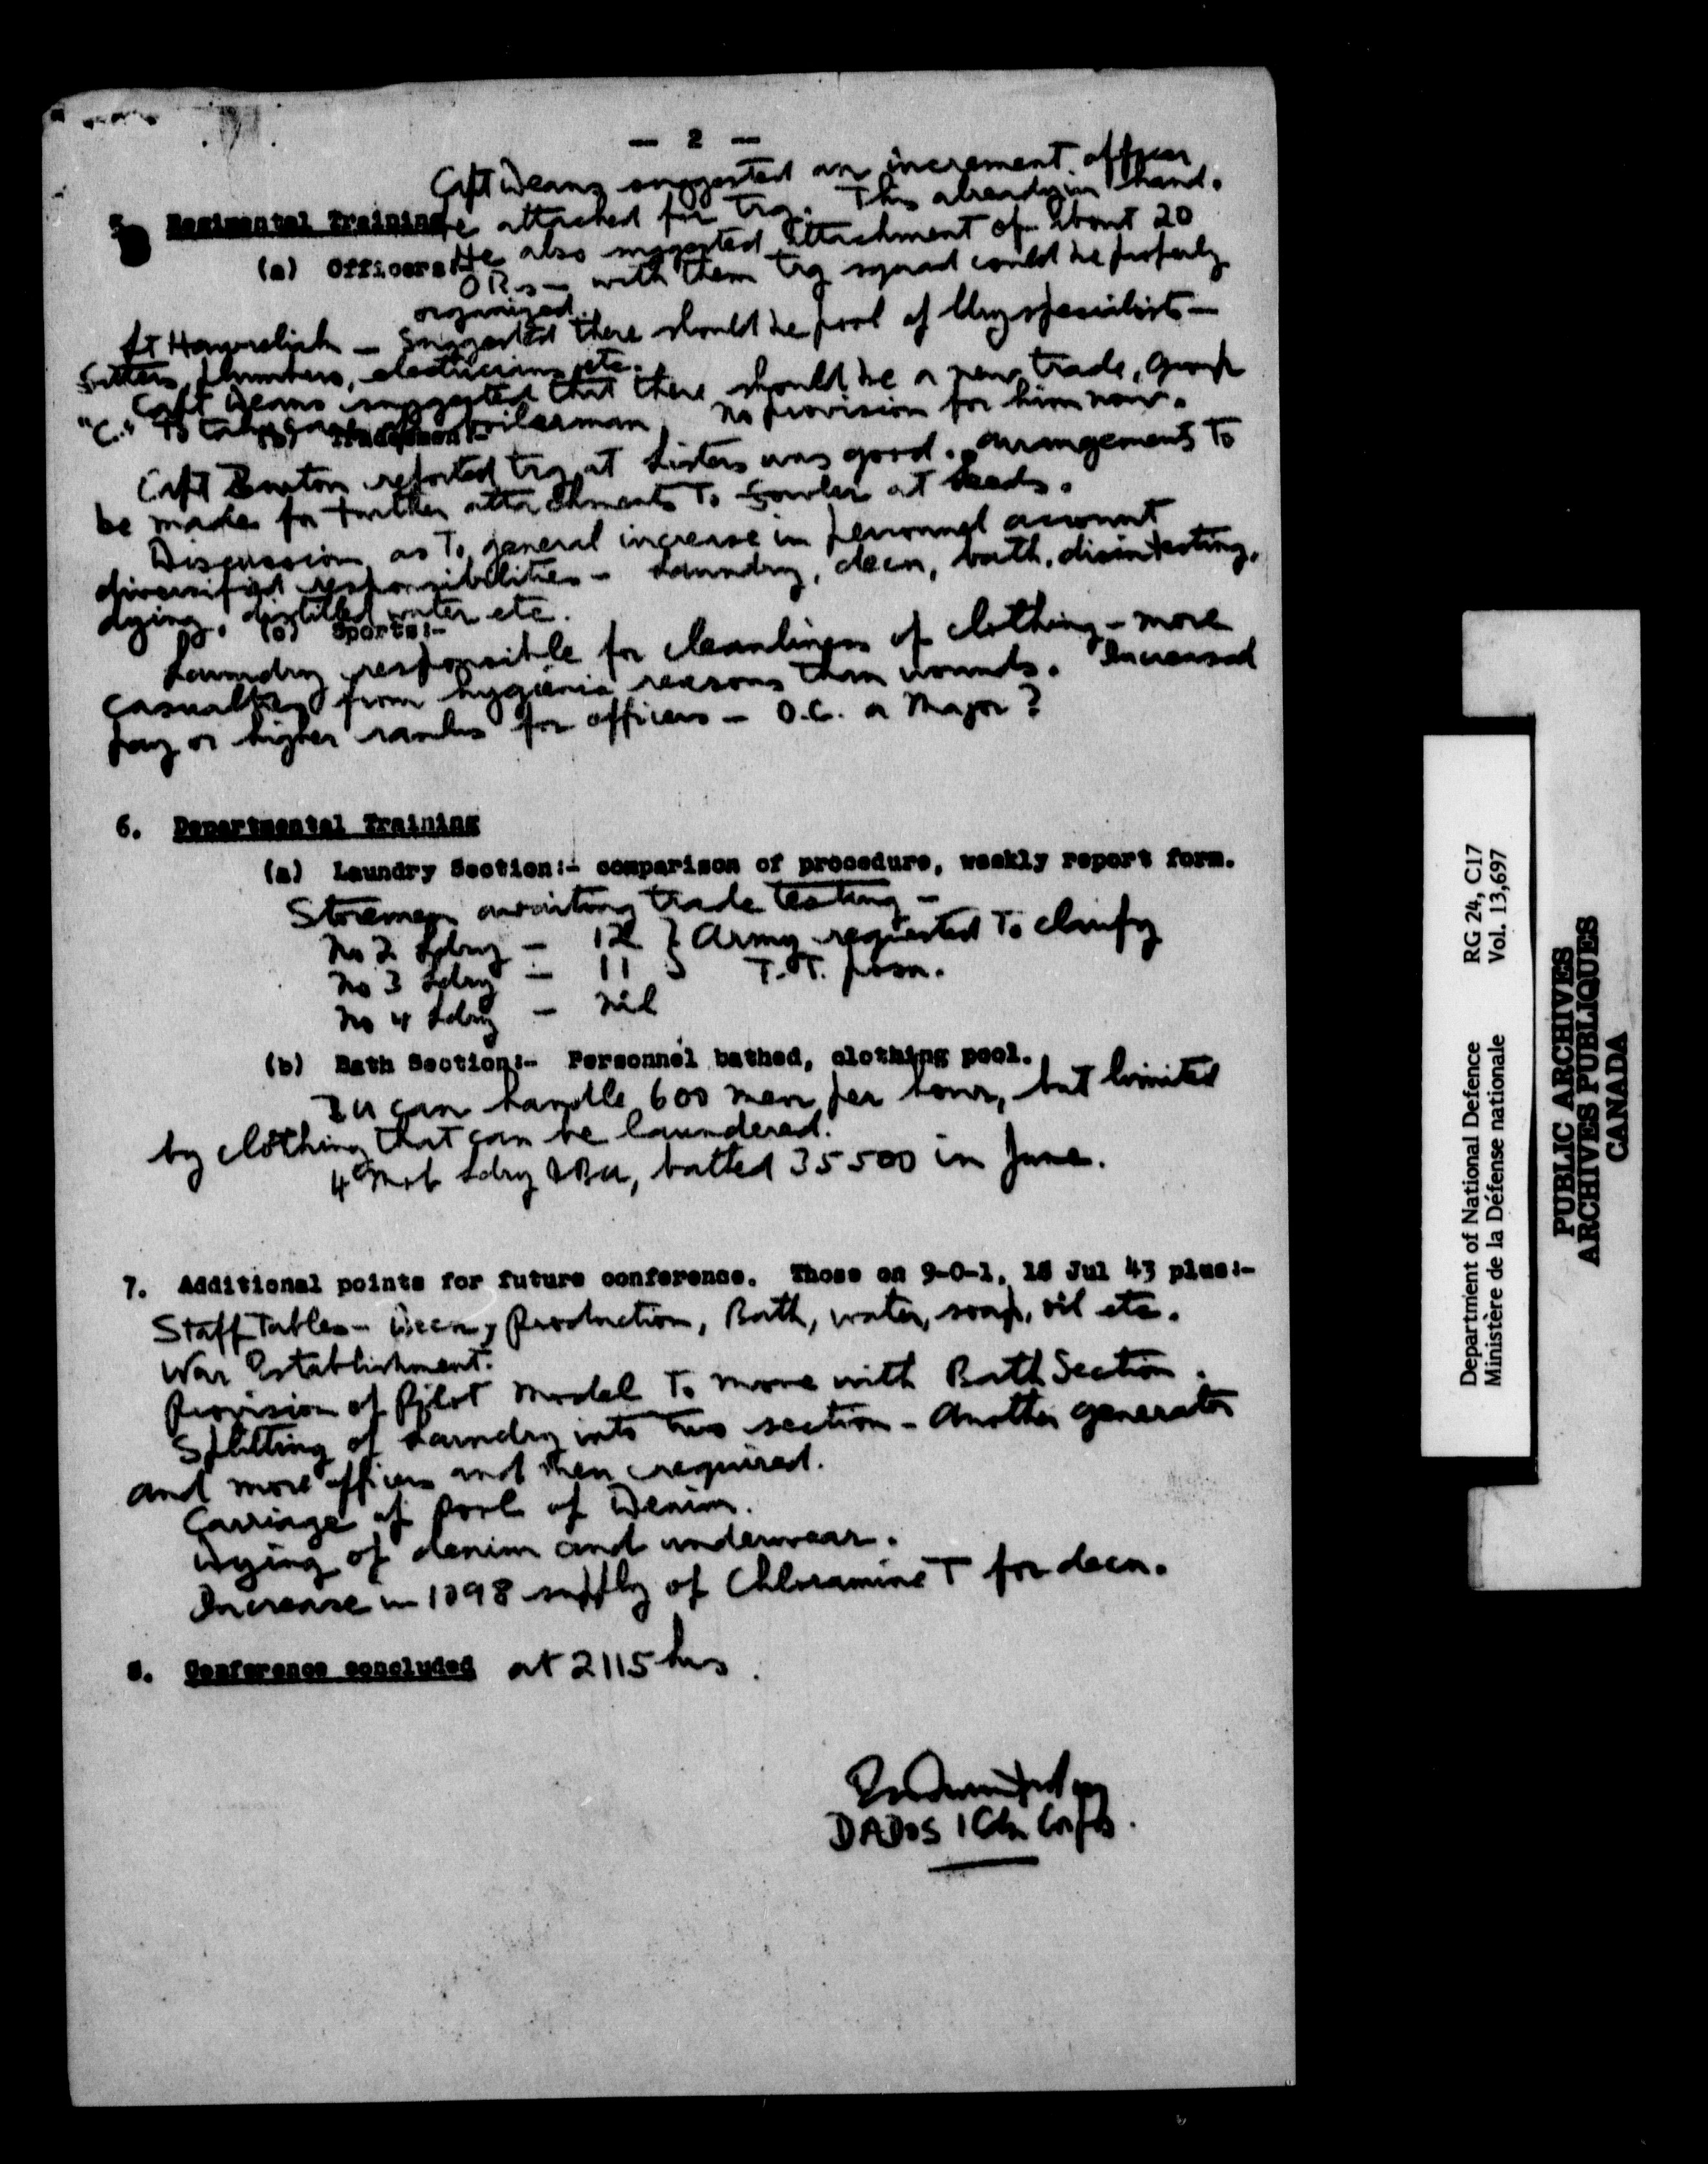 — 2 —
Capt Deans suggested an increment officer
5. Regimental Training
be attached for trg. This already in hand.
(a) Officers:-
He also suggested attachment of about 20
ORs — with them trg squad could be properly
organized.
Lt — suggested there should be pool of ldry specialists —
fitters, plumbers, electricians etc.
Capt Deans suggested that there should be a new trade, group
"C." To boilerman, no provision for him now.
(b) Tradesmen:-
Capt reported trg at Listers was good. Arrangements to
be made for further attachments to Fowler at Leeds.
Discussion as to general increase in personnel account
diversified responsibilities - Laundry, decn, bath, disinfecting,
dying, distilled water etc.
(c) Sports:-
Laundry responsible for cleanliness of clothing - more
casualties from hygienic reasons than wounds. Increased
pay or higher ranks for officers - O.C. a Major?
6. Departmental Training
(a) Laundry Section:- comparison of procedure, weekly report form.
Storemen awaiting trade testing -
No 2 Ldry - 12 } Army requested to clarify
No 3 Ldry - 11 } T.T. posn.
No 4 Ldry - nil
(b) Bath Section:- Personnel bathed, clothing pool.
BU can handle 600 men per hour, but limited
by clothing that can be laundered.
4 Mob Ldry & BU, bathed 35500 in June.
7. Additional points for future conference. Those on 9-0-1, 18 Jul 43 plus:-
Staff Tables - Decn, Production, Bath, water, soap, oil etc.
War Establishment.
Provision of Pilot Model to move with Bath Section.
Splitting of Laundry into two section - Another generator
and more officers and men required.
Carriage of Pool of Denim.
Dying of denim and underwear.
Increase in 1098 supply of Chloramine T for decn.
8. Conference concluded at 2115 hrs.
DADOS 1 Cdn Corps.
Department of National Defence RG 24, C17
Ministère de la Défense nationale Vol. 13,697
PUBLIC ARCHIVES
ARCHIVES PUBLIQUES
CANADA